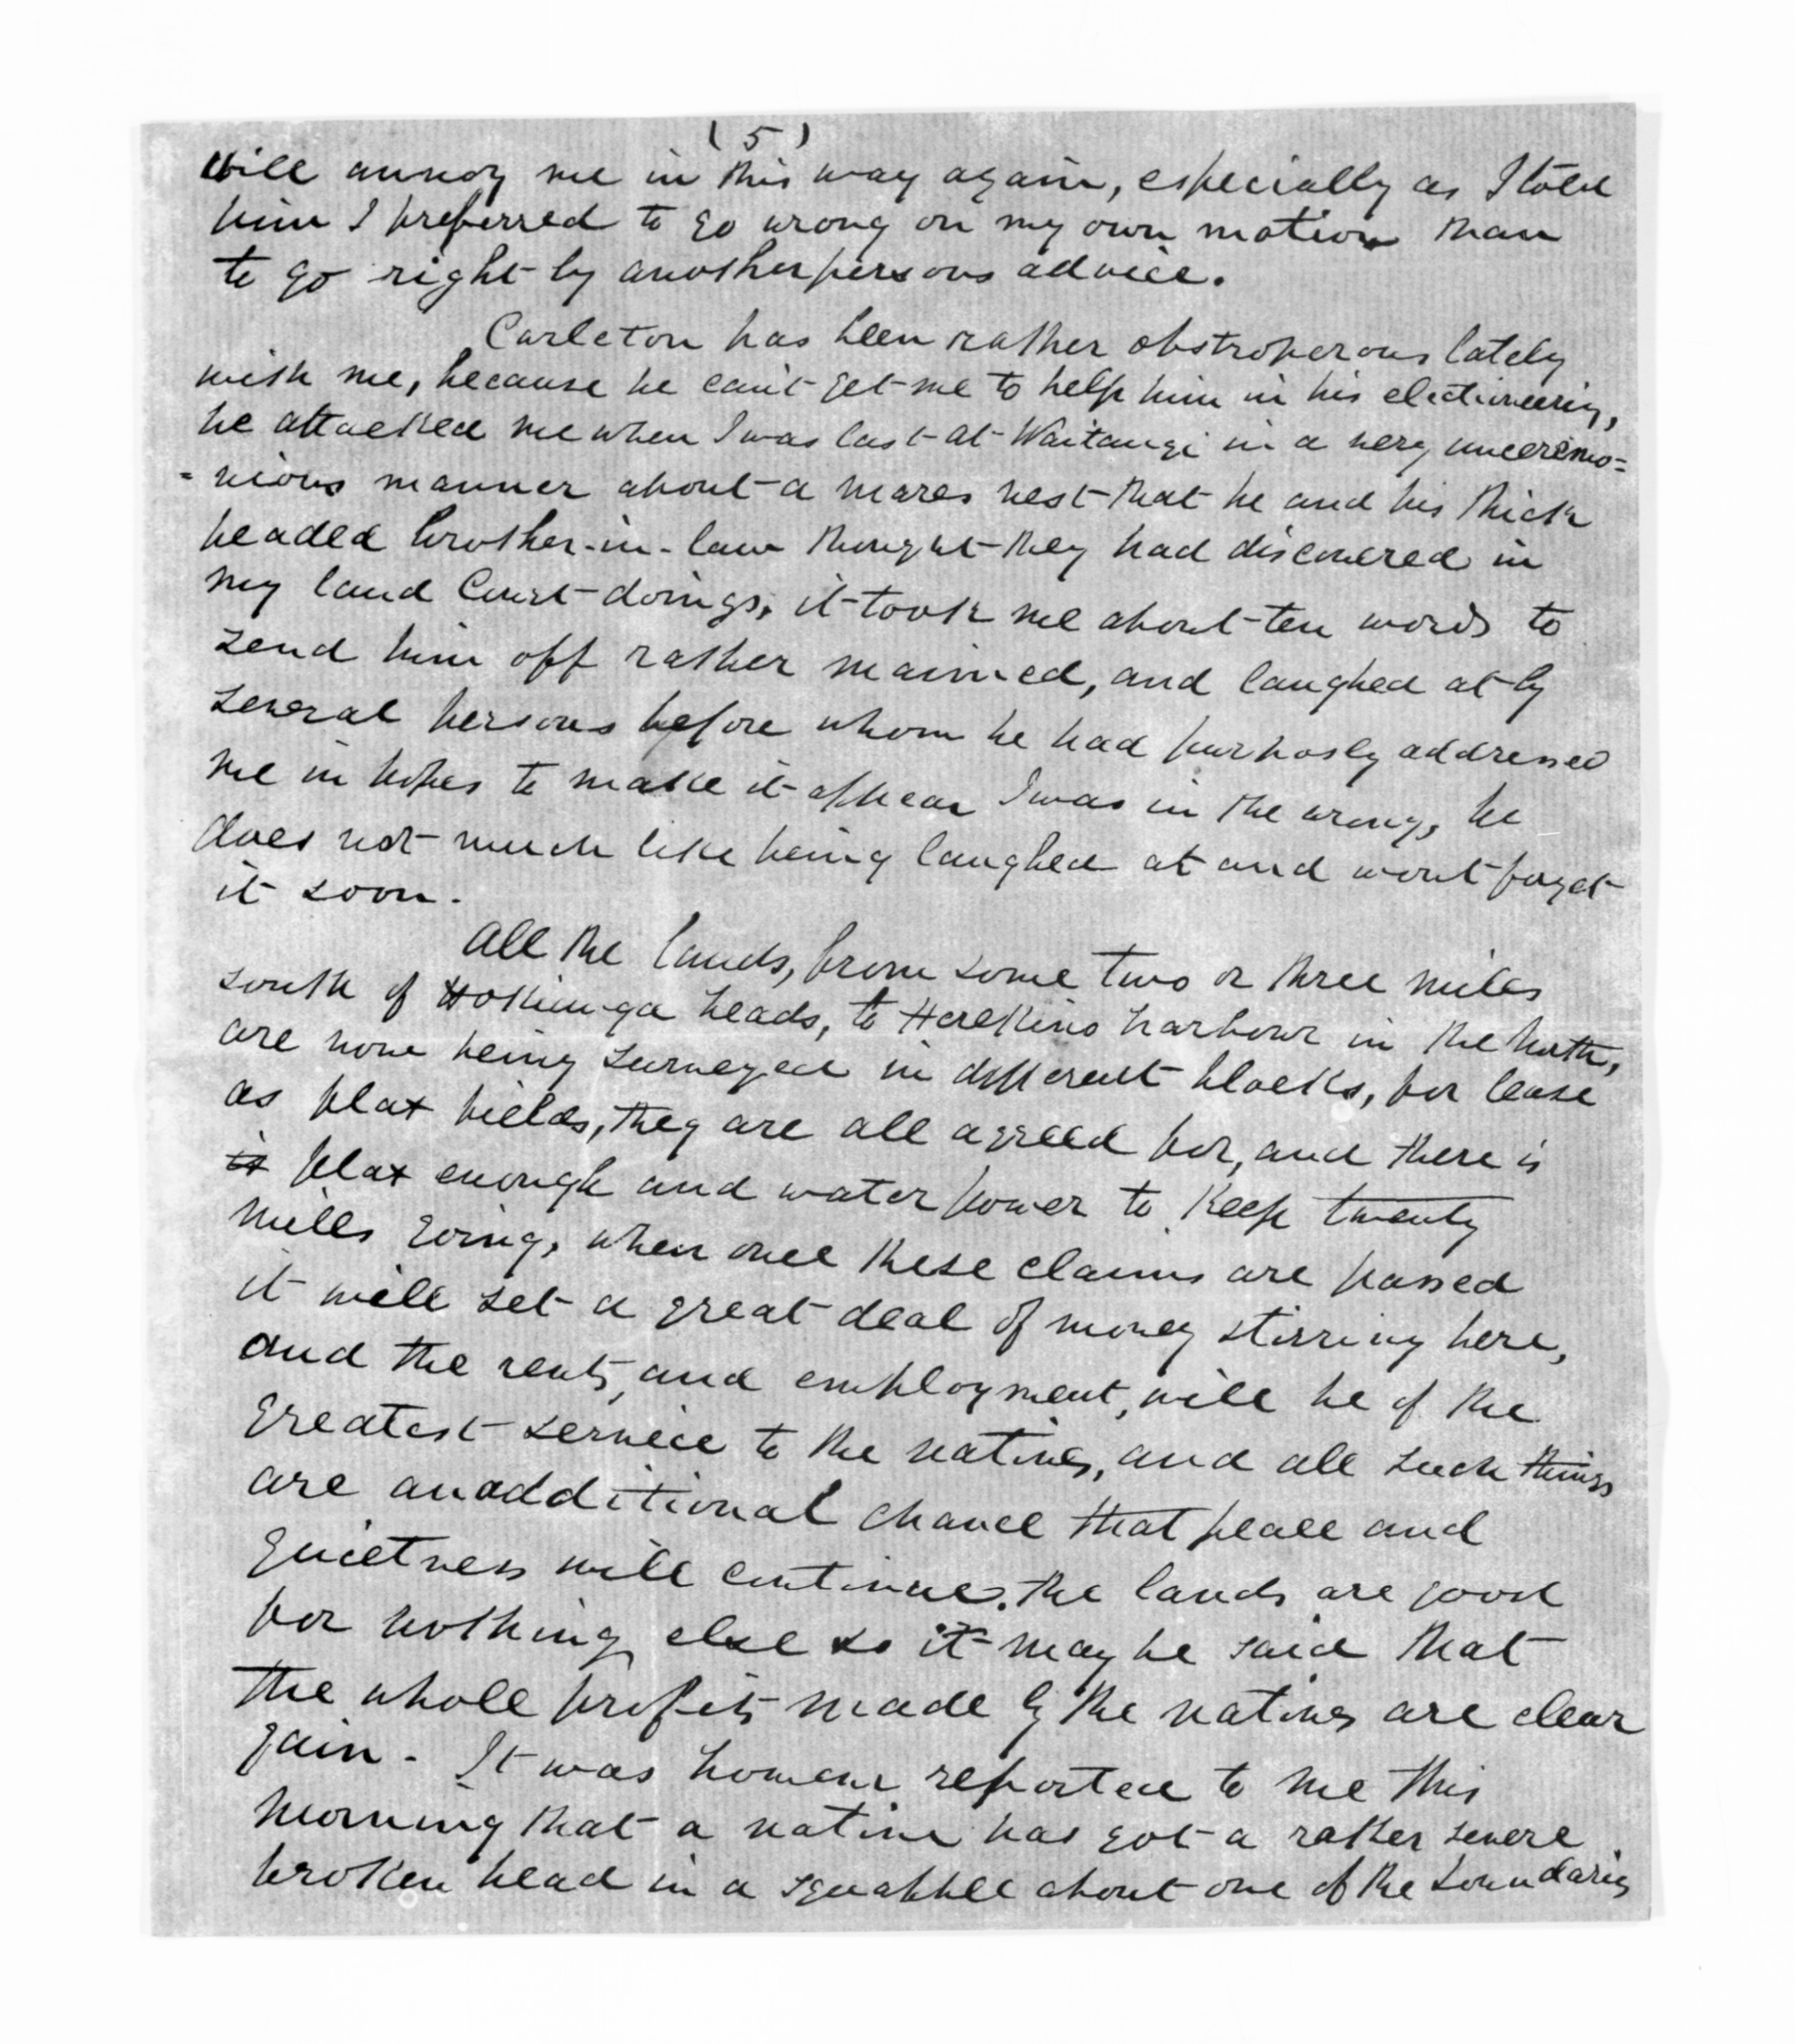 (5)
will annoy me in this way again, especially as I told
him I preferred to go wrong on my own motion than
to go right by another persons advice.
Carleton has been rather obstroperous lately
with me, because he cant get me to help him in his electioneering,
he attacked me when I was last at Waitangi in a very unceremo=
=nious manner about a mares nest that he and his thick
headed brother-in-law thought they had discovered in
my land Court doings, it took me about ten words to
send him off rather maimed, and laughed at by
several persons before whom he had purposly addressed
me in hopes to make it appear I was in the wrong, he
does not much like being laughed at and wont forget
it soon.
All the lands, from some two or three miles
south of Hokianga heads, to Herekino harbour in the North,
are now being surveyed in different blocks, for lease
as flax fields, they are all agreed for, and there is
is flax enough and water power to keep twenty
mills going, when once these claims are passed
it will set a great deal of money stirring here,
and the rents, and employment, will be of the
greatest service to the natives, and all such things
are an additional chance that peace and
quietness will continue. the lands are good
for nothing else so it may be said that
the whole profits made by the natives are clear
gain. It was however reported to me this
morning that a native has got a rather severe
broken head in a squabble about one of the boundaries